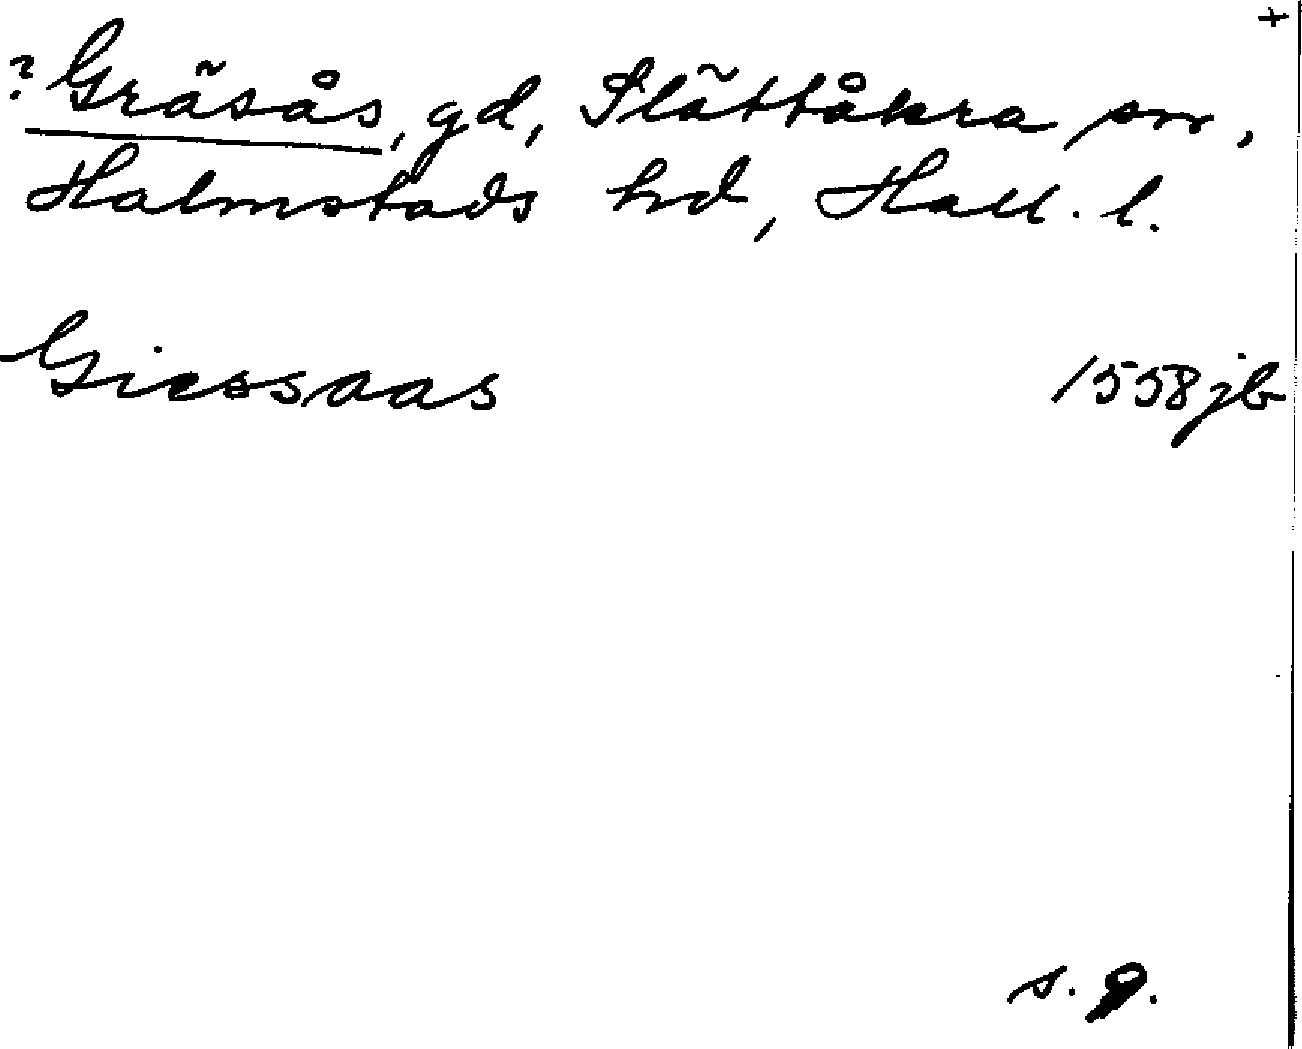 +
? Gräsås, gd, Slättåkra sn,
Halmstads hd, Hall. l.
Giessaas 1558 jb
s. 9.